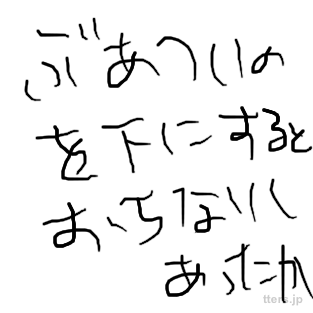 ぶあついの
を下にすると
おちないし
あったか
tters.jp